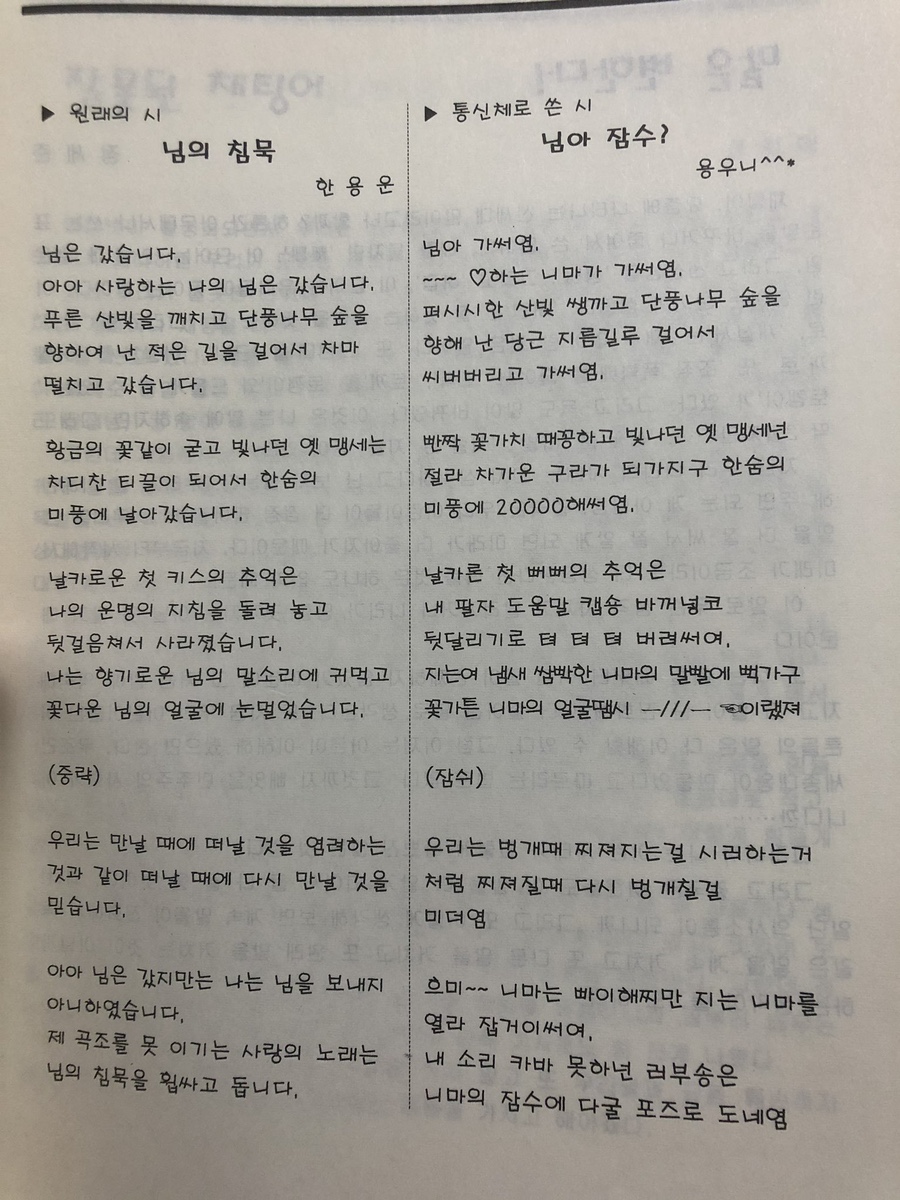 ▶ 원래의 시
님의 침묵
한 용 운
님은 갔습니다.
아아 사랑하는 나의 님은 갔습니다.
푸른 산빛을 깨치고 단풍나무 숲을
향하여 난 적은 길을 걸어서 차마
떨치고 갔습니다.
황금의 꽃같이 굳고 빛나던 옛 맹세는
차디찬 티끌이 되어서 한숨의
미풍에 날아갔습니다.
날카로운 첫 키스의 추억은
나의 운명의 지침을 돌려 놓고
뒷걸음쳐서 사라졌습니다.
나는 향기로운 님의 말소리에 귀먹고
꽃다운 님의 얼굴에 눈멀었습니다.
(중략)
우리는 만날 때에 떠날 것을 염려하는
것과 같이 떠날 때에 다시 만날 것을
믿습니다.
아아 님은 갔지만는 나는 님을 보내지
아니하였습니다.
제 곡조를 못 이기는 사랑의 노래는
님의 침묵을 휩싸고 돕니다.
▶ 통신체로 쓴 시
님아 잠수?
용우니^^*
님아 가써염.
~~~ ♡하는 니마가 가써염.
퍼시시한 산빛 쌩까고 단풍나무 숲을
향해 난 당근 지름길루 걸어서
씨버버리고 가써염.
빤짝 꽃가치 때꽁하고 빛나던 옛 맹세넌
절라 차가운 구라가 되가지구 한숨의
미풍에 20000해써염.
날카론 첫 뻐뻐의 추억은
내 팔자 도움말 캡숑 바꺼넣코
뒷달리기로 텨 텨 텨 버려써여.
지는여 냄새 쌉빡한 니마의 말빨에 뻑가구
꽃가튼 니마의 얼굴땜시 —///— ☜이랬져
(잠쉬)
우리는 벙개때 찌져지는걸 시러하는거
처럼 찌져질때 다시 벙개칠걸
미더염
흐미~~ 니마는 빠이해찌만 지는 니마를
열라 잡거이써여.
내 소리 카바 못하넌 러부송은
니마의 잠수에 다굴 포즈로 도네염